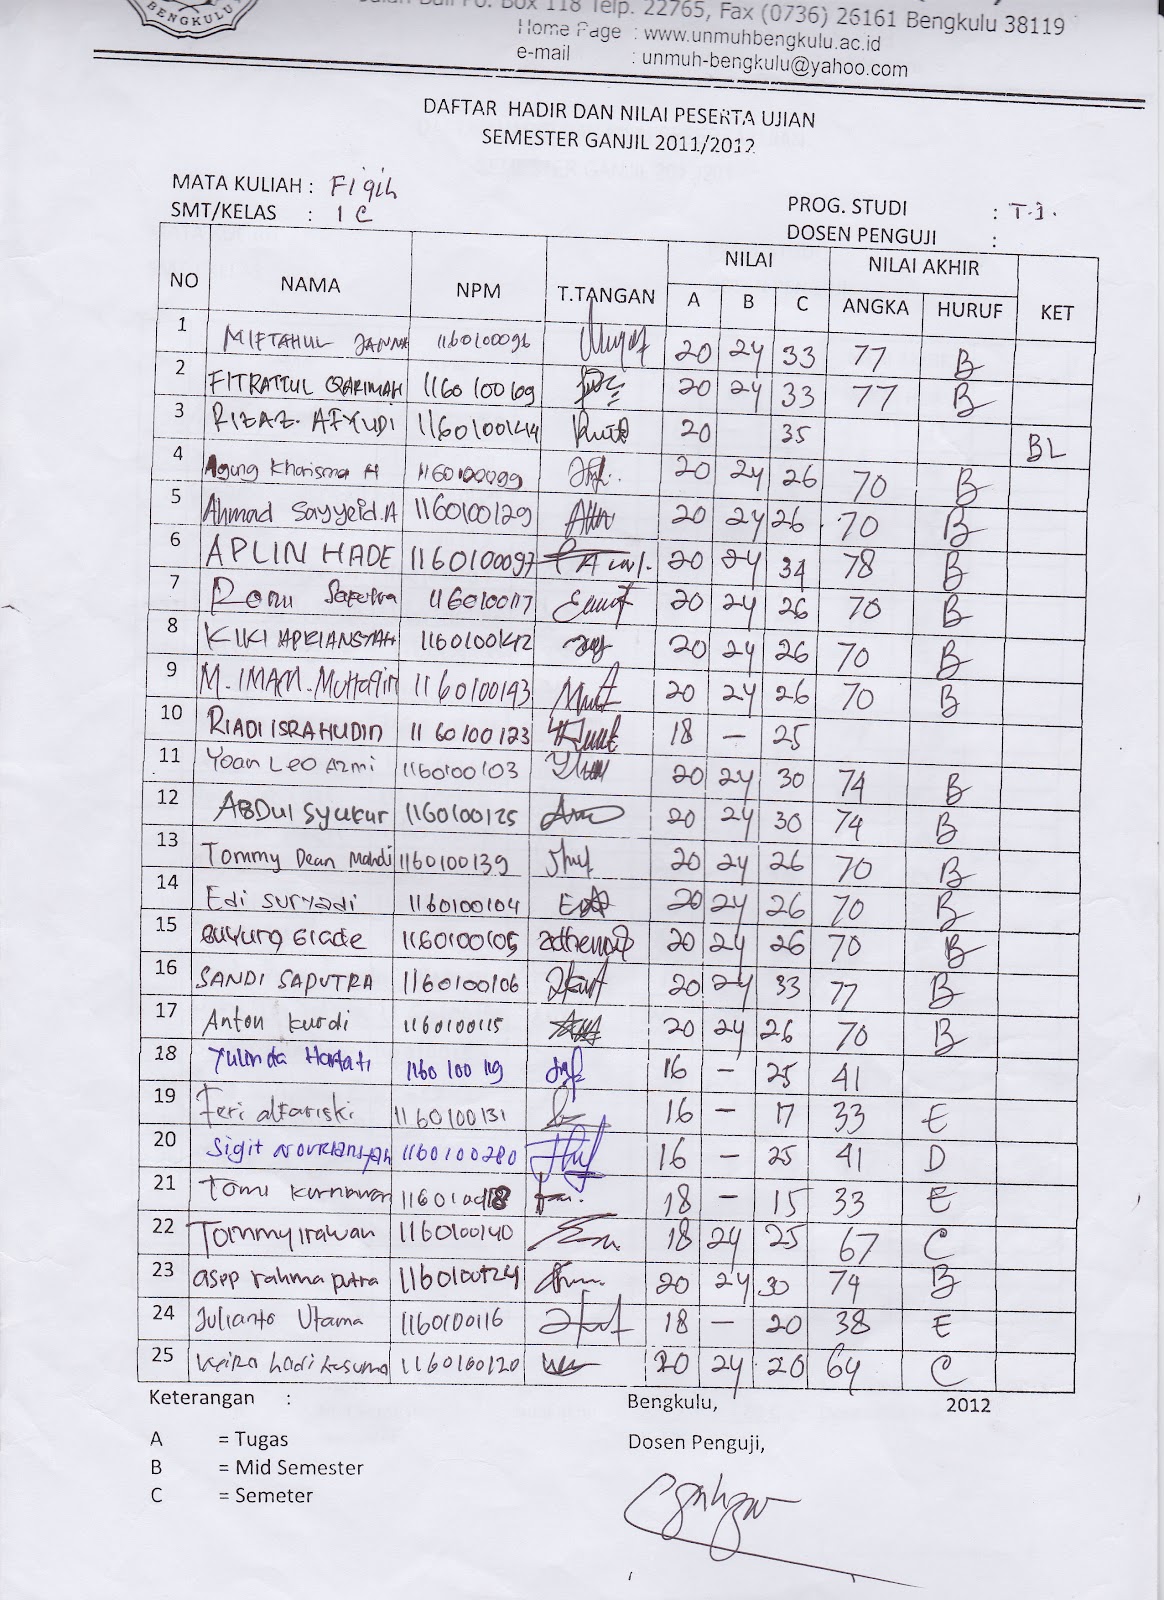 BENGKULU
Jalan Bali PO. Box 118 Telp. 22765, Fax (0736) 26161 Bengkulu 38119
Home Page : www.unmuhbengkulu.ac.id
e-mail : unmuh-bengkulu@yahoo.com
DAFTAR HADIR DAN NILAI PESERTA UJIAN
SEMESTER GANJIL 2011/2012
MATA KULIAH : Fiqih
PROG. STUDI : T.I.
SMT/KELAS : 1 C
DOSEN PENGUJI :
NO NAMA NPM T.TANGAN NILAI NILAI AKHIR KET
A B C ANGKA HURUF
1 MIFTAHUL JANNA 1160100096 20 24 33 77 B
2 FITRATUL QARIMAH 1160100109 20 24 33 77 B
3 RIZAZ. AFYUDI 1160100144 20 35 BL
4 Agung Kharisma H 1160100099 20 24 26 70 B
5 Ahmad Sayyeid.A 1160100129 20 24 26 70 B
6 APLIN HADE 1160100097 20 24 34 78 B
7 Roni Saputra 1160100117 20 24 26 70 B
8 KIKI APRIANSYAH 1160100142 20 24 26 70 B
9 M. IMAM. Muttaqin 1160100143 20 24 26 70 B
10 RIADI ISRAHUDIN 1160100123 18 – 25
11 Yoan Leo Azmi 1160100103 20 24 30 74 B
12 ABDul Syukur 1160100125 20 24 30 74 B
13 Tommy Dean Mahdi 1160100139 20 24 26 70 B
14 Edi suryadi 1160100104 20 24 26 70 B
15 Buyung Glade 1160100105 20 24 26 70 B
16 SANDI SAPUTRA 1160100106 20 24 33 77 B
17 Anton kurdi 1160100115 20 24 26 70 B
18 Yulinda Hartati 1160100119 16 – 25 41
19 Feri alfariski 1160100131 16 – 17 33 E
20 Sigit NOVRIANSYAH 1160100280 16 – 25 41 D
21 Tomi Kurniawan 18 – 15 33 E
22 Tommy irawan 1160100140 18 24 25 67 C
23 asep rahma putra 1160100124 20 24 30 74 B
24 Julianto Utama 1160100116 18 – 20 38 E
25 Keira hadi kesuma 1160100120 20 24 20 64 C
Keterangan :
Bengkulu, 2012
A = Tugas
Dosen Penguji,
B = Mid Semester
C = Semeter